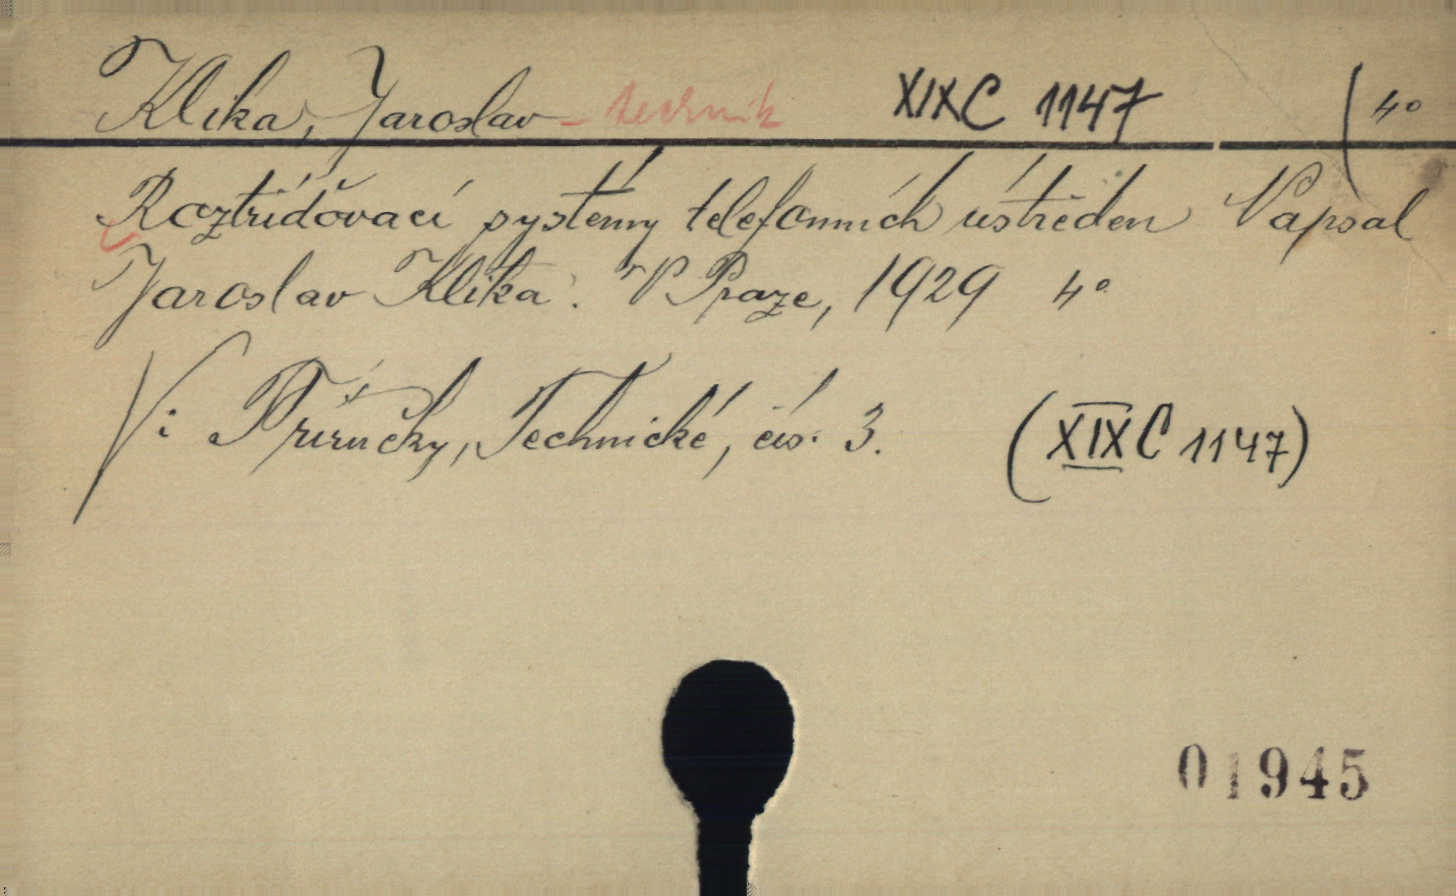 Klika, Jaroslav - technik XIXC 1147 (4°
Roztřiďovací systémy telefonních ústředen Napsal
Jaroslav Klika. V Praze, 1929 4°
V: Příručky, Technické, čís. 3. (XIX C 1147)
01945